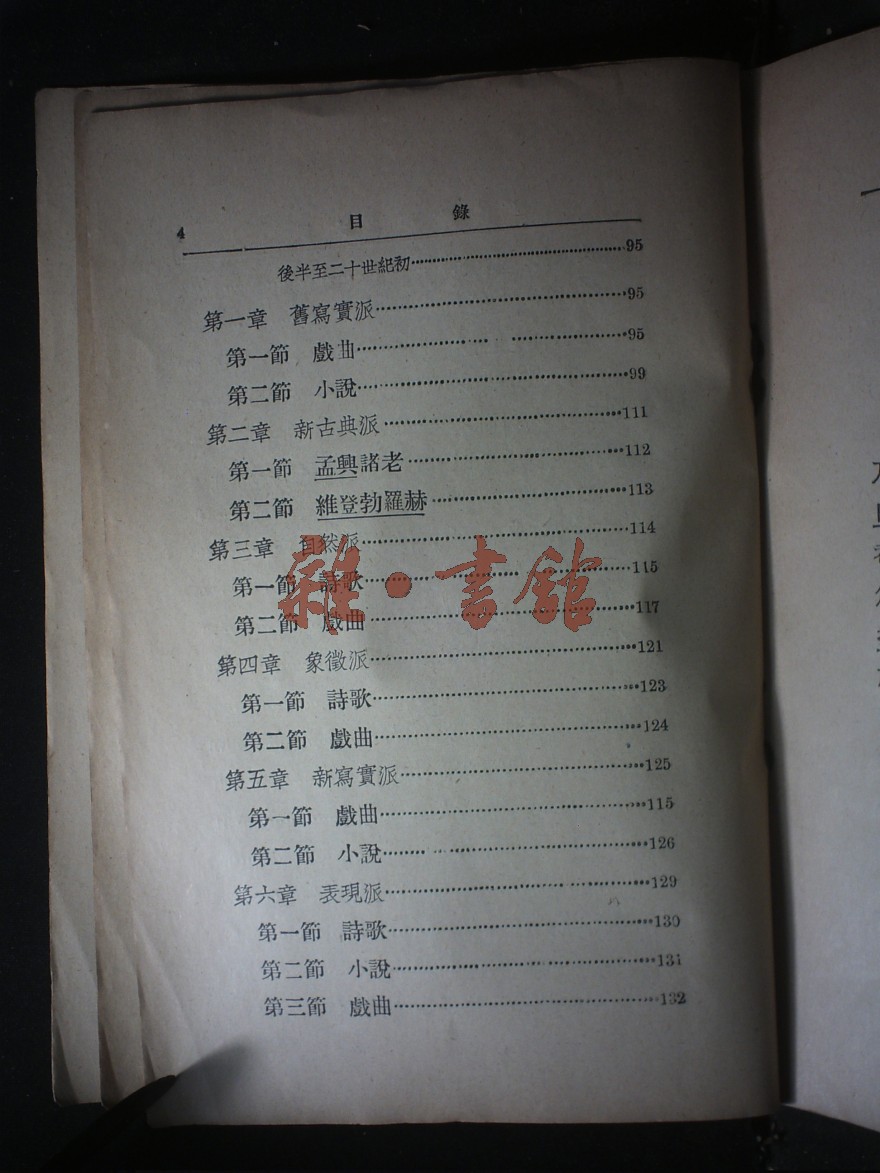 4 目 錄
後半至二十世紀初……95
第一章 舊寫實派……95
第一節 戲曲……95
第二節 小說……99
第二章 新古典派……111
第一節 孟興諸老……112
第二節 維登勃羅赫……113
第三章 自然派……114
第一節 詩歌……115
第二節 戲曲……117
雜·書館
第四章 象徵派……121
第一節 詩歌……123
第二節 戲曲……124
第五章 新寫實派……125
第一節 戲曲……115
第二節 小說……126
第六章 表現派……129
第一節 詩歌……130
第二節 小說……131
第三節 戲曲……132